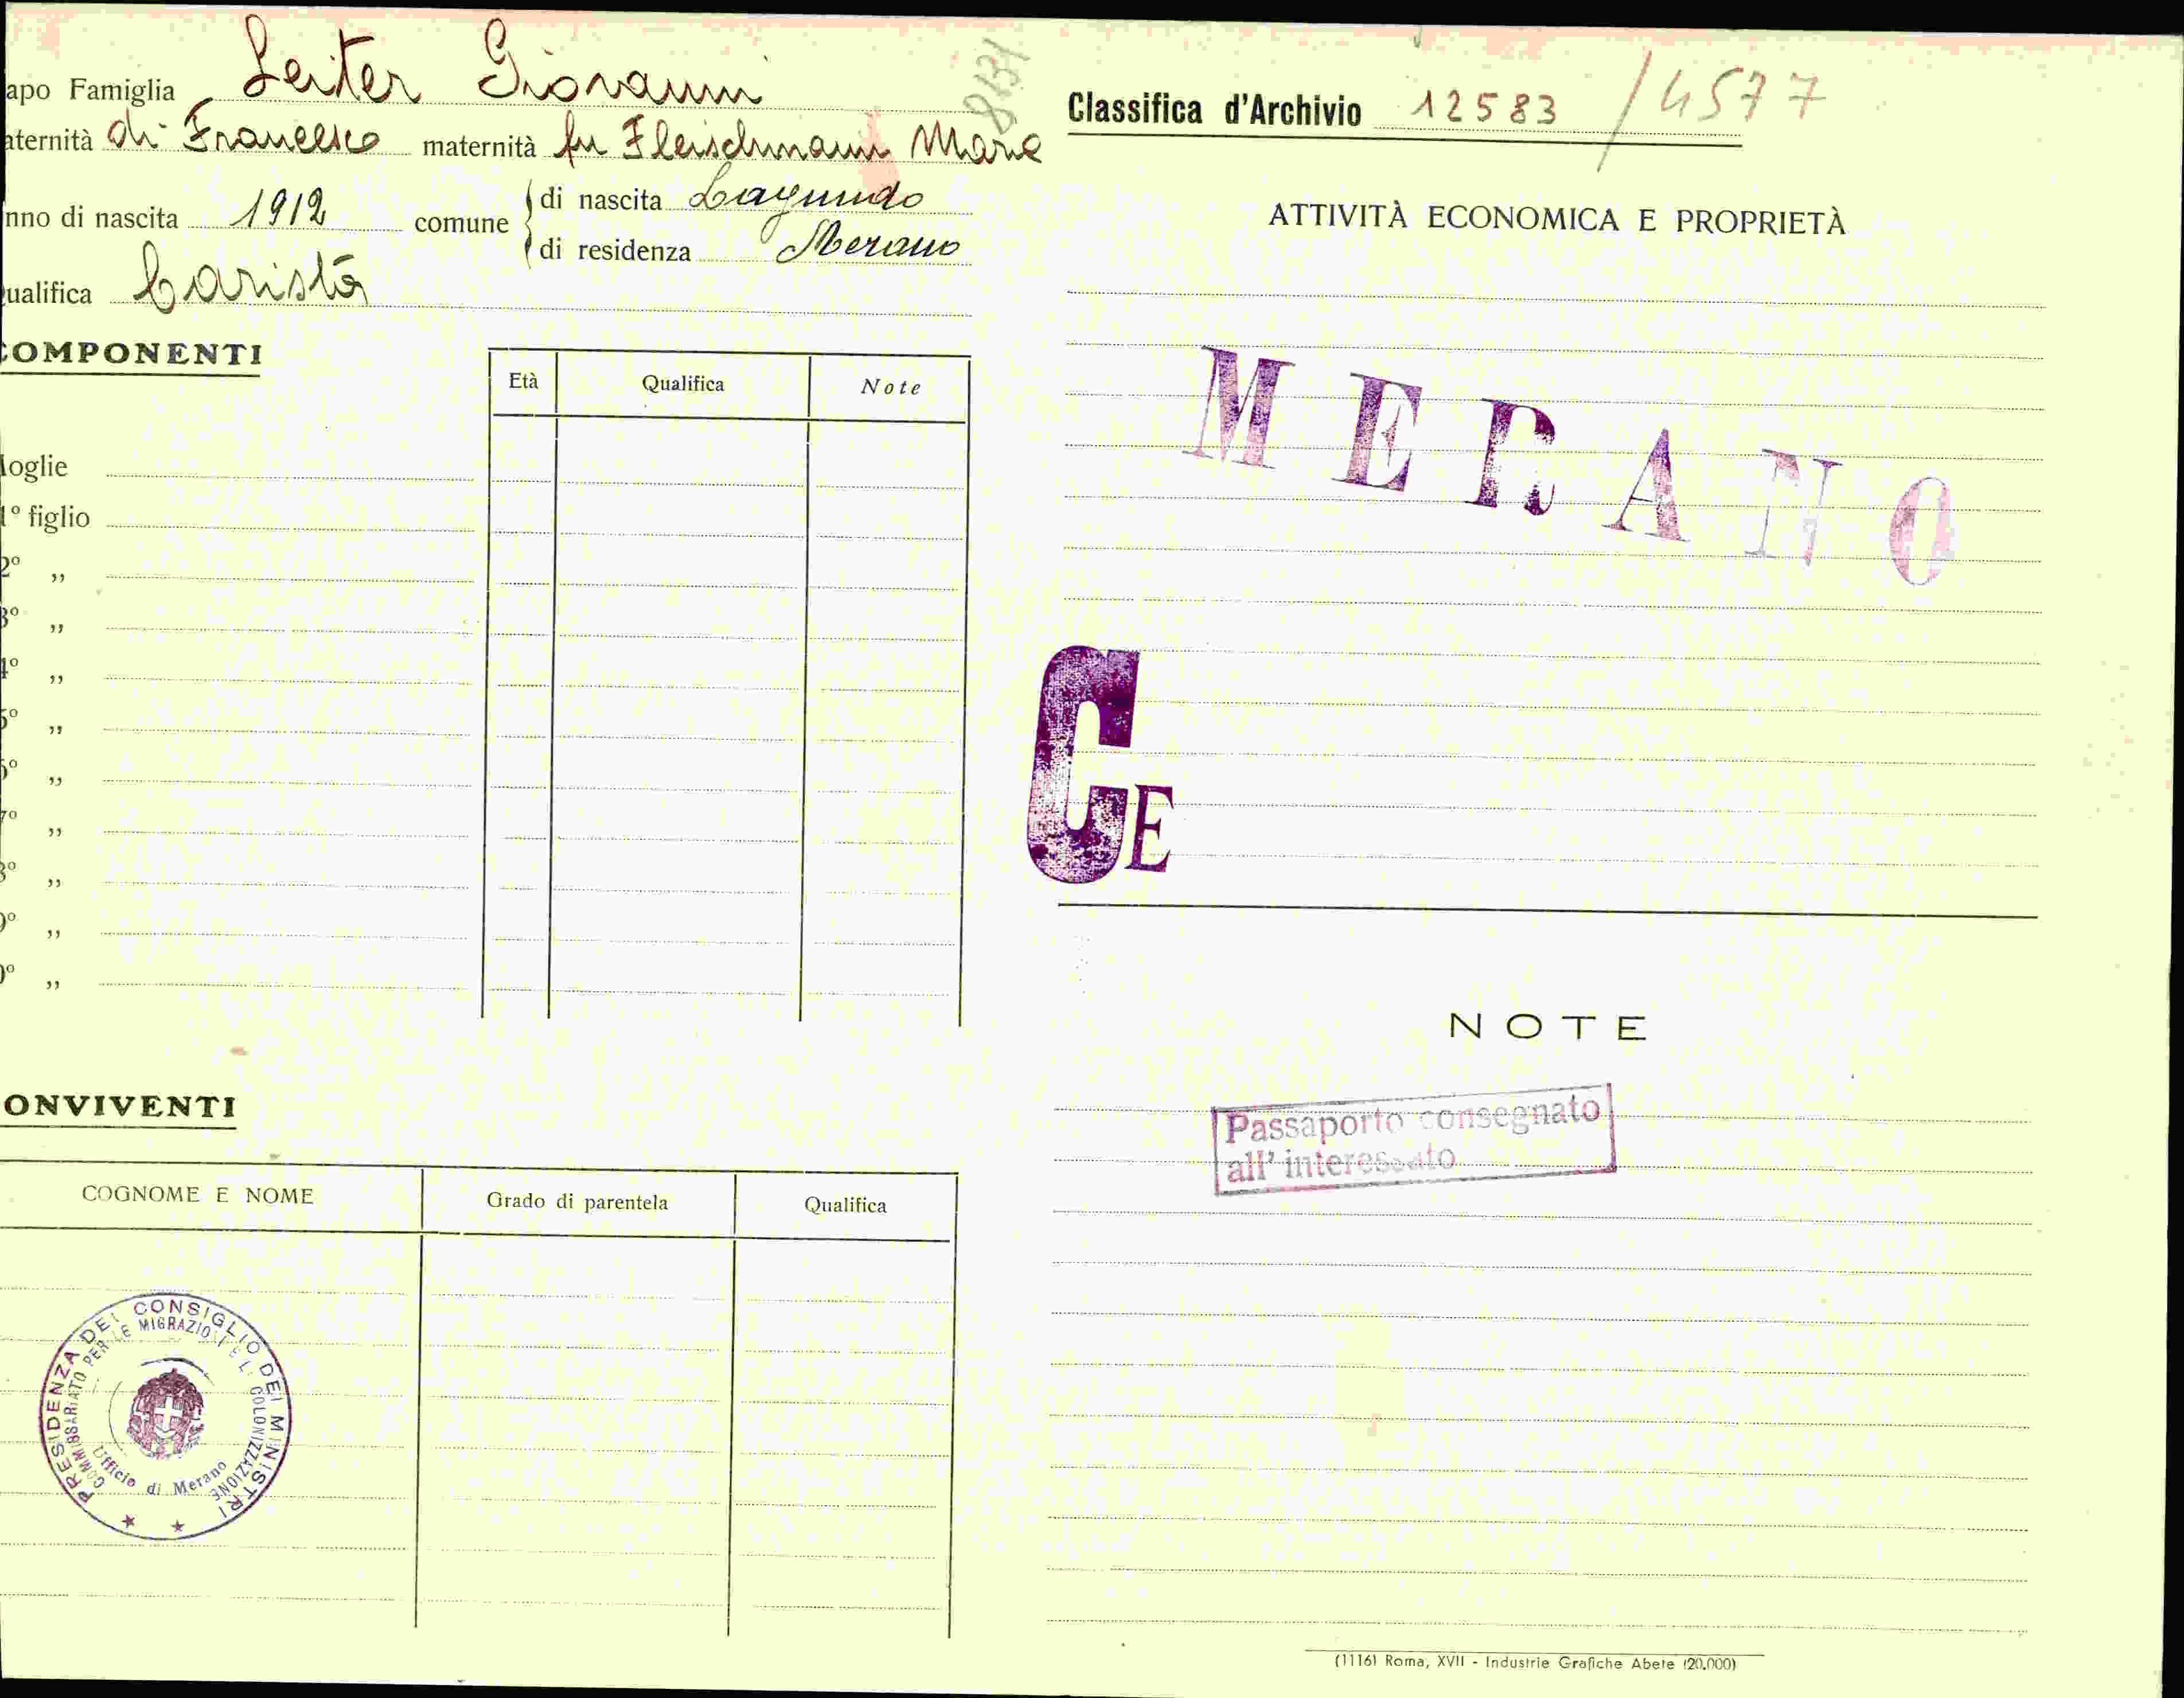 apo Famiglia Leiter Giovanni
aternità di Francesco maternità fu Fleischmann Maria
nno di nascita 1912 comune di nascita Lagundo
di residenza Merano
ualifica Barista
COMPONENTI
Età Qualifica Note
oglie
1° figlio
2° ,,
3° ,,
4° ,,
5° ,,
6° ,,
7° ,,
8° ,,
9° ,,
0° ,,
ONVIVENTI
COGNOME E NOME Grado di parentela Qualifica
PRESIDENZA DEL CONSIGLIO DEI MINISTRI
COMMISSARIATO PER LE MIGRAZIONI E LA COLONIZZAZIONE
Ufficio di Merano
8131
Classifica d'Archivio 12583 / 4577
ATTIVITÀ ECONOMICA E PROPRIETÀ
MERANO
CE
NOTE
Passaporto consegnato
all' interessato
(1116) Roma, XVII - Industrie Grafiche Abete (20.000)